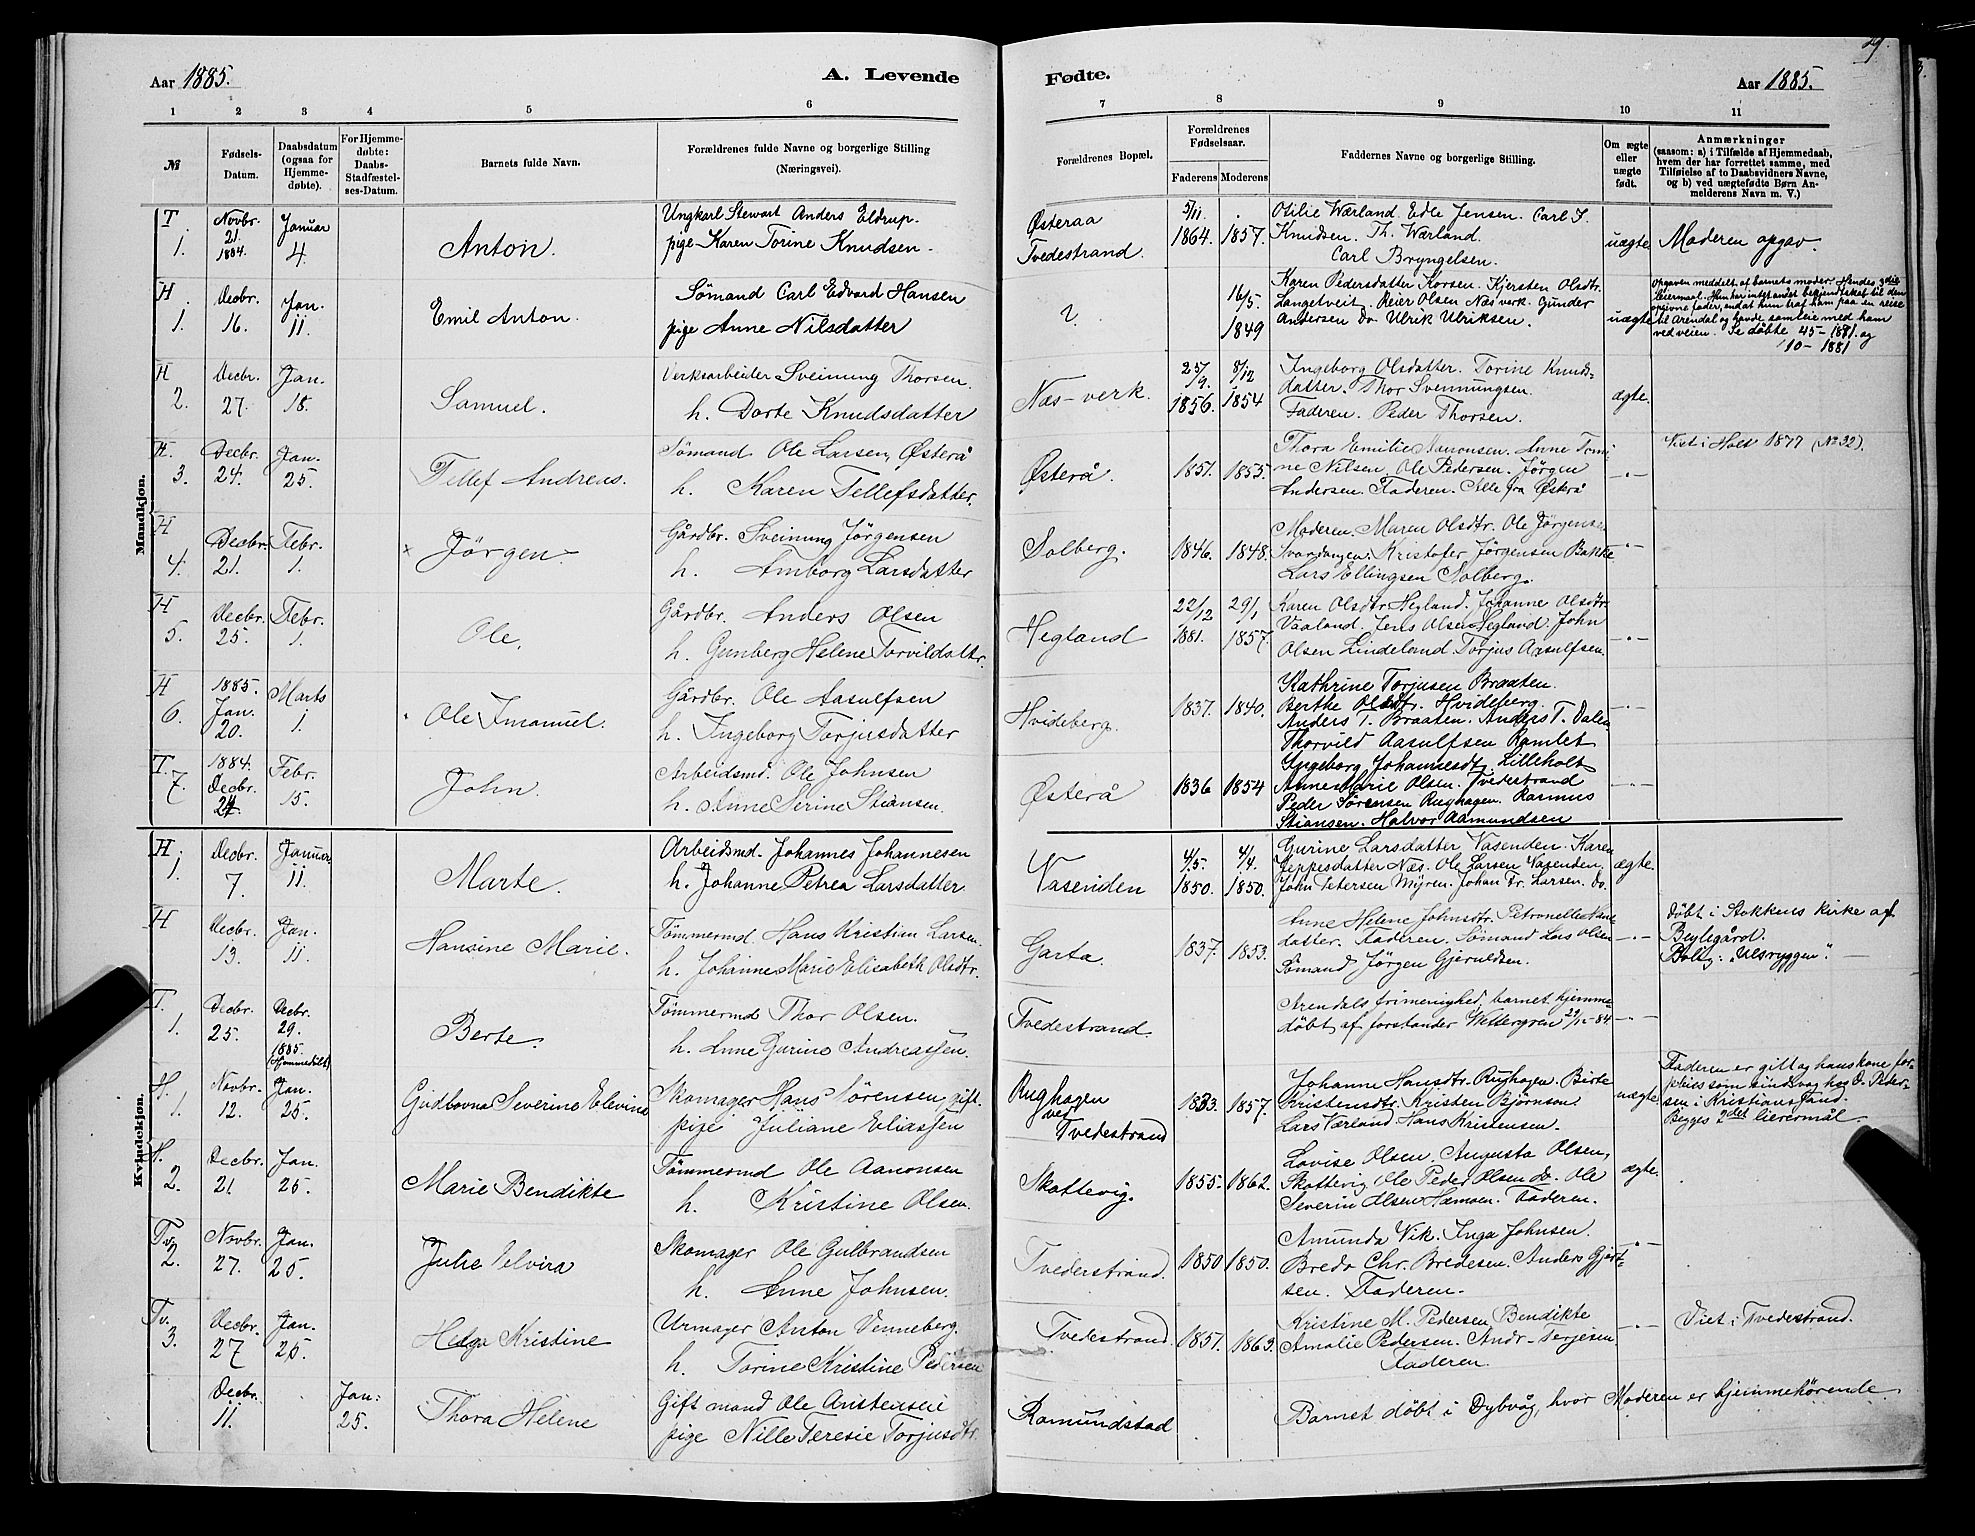 29.
Aar 1885.
A. Levende
Fødte.
Aar 1885.
1 2 3 4 5 6 7 8 9 10 11
№
Fødsels-
Datum.
Daabsdatum
(ogsaa for
Hjemme-
døbte).
For Hjemme-
døbte:
Daabs-
Stadfæstel-
ses-Datum.
Barnets fulde Navn.
Forældrenes fulde Navne og borgerlige Stilling
(Næringsvei).
Forældrenes Bopæl.
Forældrenes
Fødselsaar.
Faderens
Moderens
Faddernes Navne og borgerlige Stilling.
Om ægte
eller
uægte
født.
Anmærkninger
(saasom: a) i Tilfælde af Hjemmedaab,
hvem der har forrettet samme, med
Tilføielse af to Daabsvidners Navne,
og b) ved uægtefødte Børn An-
melderens Navn m. V.)
Mandkjøn.
T.
1.
Novbr.
21.
1884.
Januar
4.
Anton.
Ungkarl Stewart Anders Eldrup
pige Karen Torine Knudsen.
Østeraa
Tvedestrand.
5/11.
1864.
1857.
Otilie Wærland. Edle Jensen. Carl S.
Knudsen. Th. Wærland.
Carl Bryngelsen.
uægte
Moderen opgav.
H
1.
Decbr.
16.
Jan.
11.
Emil Anton.
Sømand Carl Edvard Hansen
pige Anne Nilsdatter
?
16/5.
1849
Karen Pedersdatter Korsen. Kjersten Olsdtr.
Langetveit. Reier Olsen Næs verk. Gunder
Andersen Do Ulrik Ulriksen.
uægte
Opgaven meddelt af barnets moder. Hendes 3die
leiermaal. Hun har intet andet bekjendtskab til den
opgivne fader, endat hun traf ham paa en reise
til Arendal og havde samleie med ham
ved veien. Se døbte 45-1881. og
10-1881
H
2.
Decbr.
27.
Jan.
18.
Samuel.
Verksarbeider Sveinung Thorsen.
h. Dorte Knudsdatter
Næs-verk.
25/9.
1856.
8/12
1854
Ingeborg Olsdatter. Torine Knuds-
datter. Thor Svennungsen.
Faderen. Peder Thorsen.
ægte.
H.
3.
Decbr.
24.
Jan.
25.
Tellef Andreas.
Sømand Ole Larsen, Østerå
h. Karen Tellefsdatter.
Østerå.
1851.
1853.
Thora Emilie Aanonsen. Anne Tomi-
ne Nilsen. Ole Pedersen. Jörgen
Andersen. Faderen. Alle fra Østerå
—„—
Viet i Holt 1877 (No 32).
H
4.
Decbr.
21.
Febr.
1.
×
Jörgen.
Gårdbr. Sveinung Jörgensen
h. Amborg Larsdatter
Solberg.
1846.
1848.
Moderen. Maren Olsdtr. Ole Jörgensen
Svardangen. Kristofer Jörgensen Bakke
Lars Ellingsen Solberg.
—„—
H
5.
Decbr.
25.
Febr.
1.
Ole.
Gårdbr. Anders Olsen
h. Gunberg Helene Torvildsdtr.
Hegland
22/12
1881.
29/1
1857.
Karen Olsdtr. Hegland. Johanne Olsdtr.
Vaaland. Jens Olsen Hegland. John
Olsen Lindeland. Torjus Aasulfsen.
—„—
H
6.
1885.
Jan.
20.
Marts
1.
Ole Imanuel.
Gårdbr. Ole Aasulfsen
h. Ingeborg Torjusdatter
Hvideberg.
1837.
1840.
Kathrine Torjusen Braaten.
Berthe Olsdtr. Hvideberg.
Anders T. Braaten. Anders T. Dalen
Thorvild Aasulfsen Ramlet
—„—
T.
7.
1884.
Decbr.
24.
Febr.
15.
John.
Arbeidsmd. Ole Johnsen
h. Anne Serine Stiansen.
Østerå
1836
1854
Ingeborg Johannesdtr. Lilleholt
Anne Marie Olsen. Tvedestrand
Peder Sörensen Rughagen. Rasmus
Stiansen. Halvor Aamundsen
—„—
Kvindekjøn.
H.
1.
Decbr.
7.
Januar
11.
Marte.
Arbeidsmd. Johannes Johannesen
h. Johanne Petrea Larsdatter
Vasenden
4/5.
1850.
4/4.
1850.
Gurine Larsdatter Vasenden. Karen
Jeppesdatter Næs. Ole Larsen Vasenden,
John Petersen Myren. Johan Fr. Larsen. do.
ægte.
H
Decbr.
13.
Jan.
11.
Hansine Marie.
Tömmermd. Hans Kristian Larsen.
h. Johanne Marie Elisabeth Olsdtr.
Garta.
1837.
1853.
Anne Helene Johnsdtr. Petronelle Hans-
datter. Faderen. Sömand Lars Olsen
Sömand Jörgen Gjeruldsen.
—„—
Döbt i Stokkens kirke af
Beylegård.
Bolig: „Ulsryggen".
T.
1.
Decbr.
25.
Decbr.
29.
1885.
(Hjemmedöbt)
Berte.
Tömmermd Thor Olsen.
h. Anne Gurine Andreassen.
Tvedestrand.
Arendals frimenighed, barnet hjemme-
döbt af forstander Wettergren 29/12-84.
—„—
H.
1.
Novbr.
12.
Jan.
25.
Gudbovna Severine Elevine
Skomager Hans Sörensen, gift.
pige Juliane Eliassen
Rughagen
ved
Tvedestrand
1833.
1857.
Johanne Hansdtr. Rughagen. Birte
Kristensdtr. Kristen Björnson
Lars Værland. Hans Kristensen.
uægte
Faderen er gift og hans kone for-
pleies som sindsvag hos D. Peder-
sen i Kristianssand.
Begges 2det leiermål.
H.
2.
Decbr.
21
Jan.
25.
Marie Bendikte
Tömmermd Ole Aanonsen
h. Kristine Olsen.
Skottevig.
1855.
1862.
Lovise Olsen. Augusta Olsen,
Skottevig. Ole Peder Olsen do. Ole
Severin Olsen Hæmoen. Faderen.
ægte.
Tv.
2.
Novbr.
27.
Jan.
25.
Julie Elvira
Skomager Ole Gulbrandsen
h. Anne Johnsen.
Tvederstrand.
1850
1850.
Amunda Vik. Inga Johnsen.
Bredo Chr. Bredesen. Anders Gjert-
sen. Faderen.
—„—
Tv.
3.
Decbr.
27
Jan.
25.
Helga Kristine
Urmager Anton Venneberg.
h. Torine Kristine Pedersen
Tvedestrand.
1851.
1863.
Kristine M. Pedersen Bendikte
Amalie Pedersen. Andr. Terjesen.
Faderen.
—„—
Viet i Tvedestrand.
Decbr.
11.
Jan:
25.
Thora Helene
Gift mand Ole Aristensen
pige Nille Teresie Torjusdtr.
Ramundstad
Barnet döbt i Dybvåg, hvor Moderen er hjemmehörende.